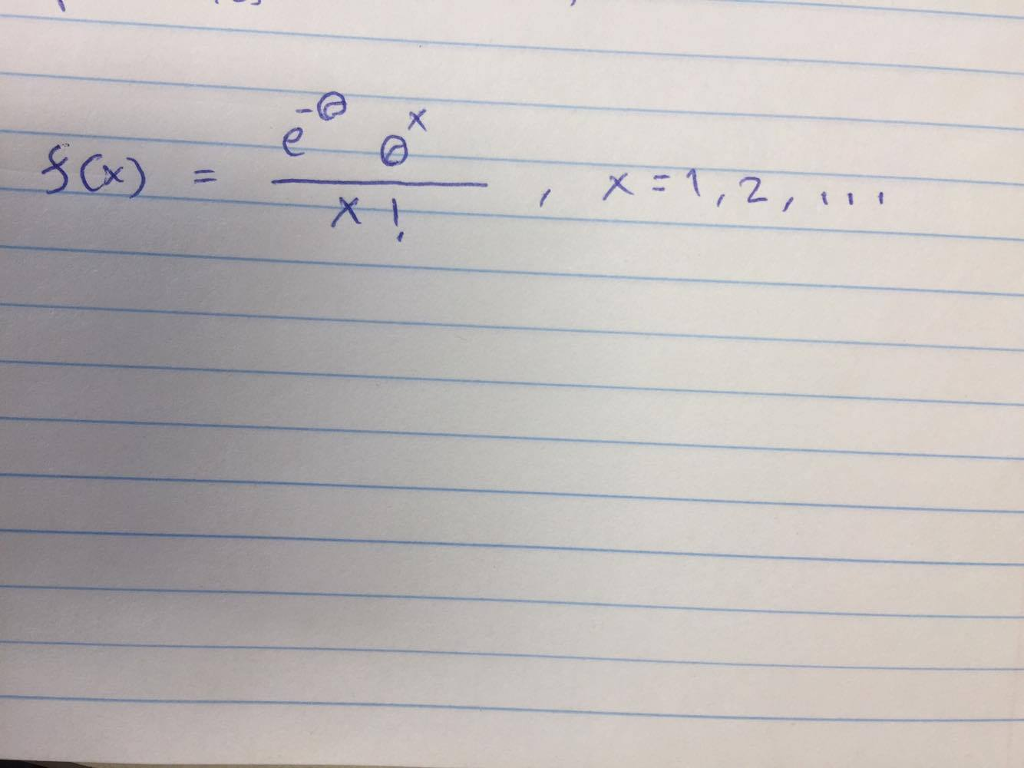 f(x) = e^{-θ} θ^x / x! , x = 1, 2, ...